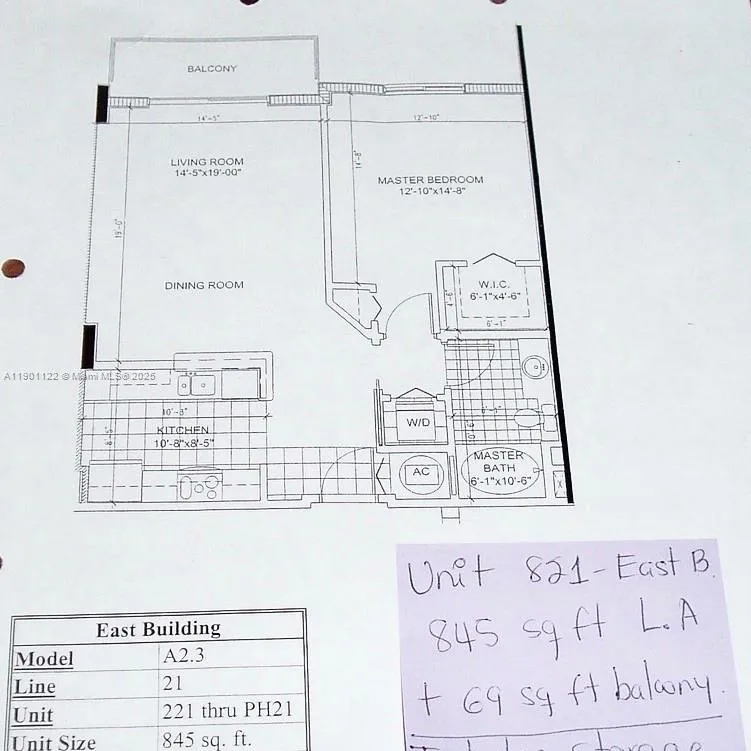 BALCONY
14'-5"
12'-10"
LIVING ROOM
14'-5"x19'-00"
14'-8"
MASTER BEDROOM
12'-10"x14'-8"
19'-0"
DINING ROOM
W.I.C.
6'-1"x4'-6"
4'-6"
6'-1"
A11901122 © Miami MLS® 2025
10'-8"
KITCHEN
10'-8"x8'-5"
8'-5"
W/D
AC
MASTER
BATH
6'-1"x10'-6"
East Building
Model A2.3
Line 21
Unit 221 thru PH21
Unit Size 845 sq. ft.
Unit 821-East B.
845 sq ft L.A
+ 69 sq ft balcony.